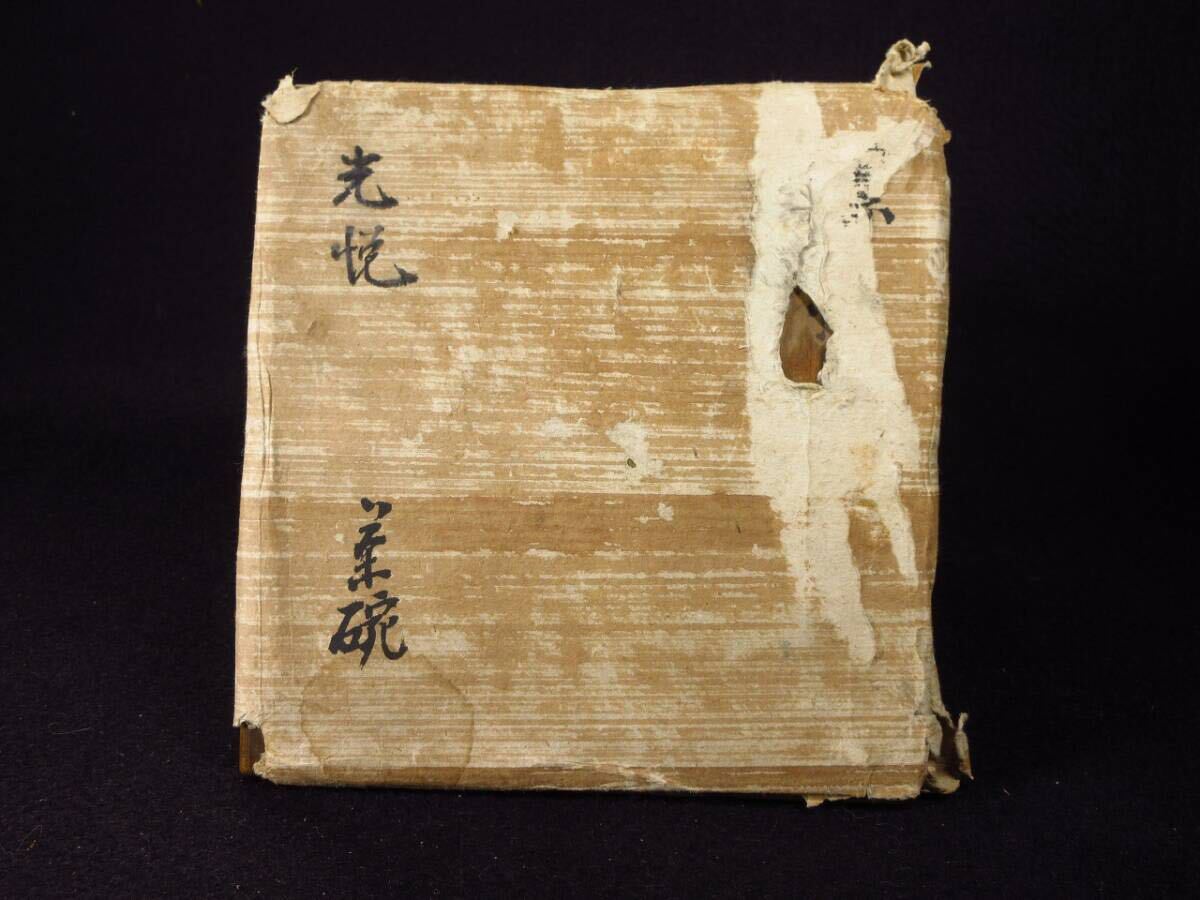 光悦 茶碗